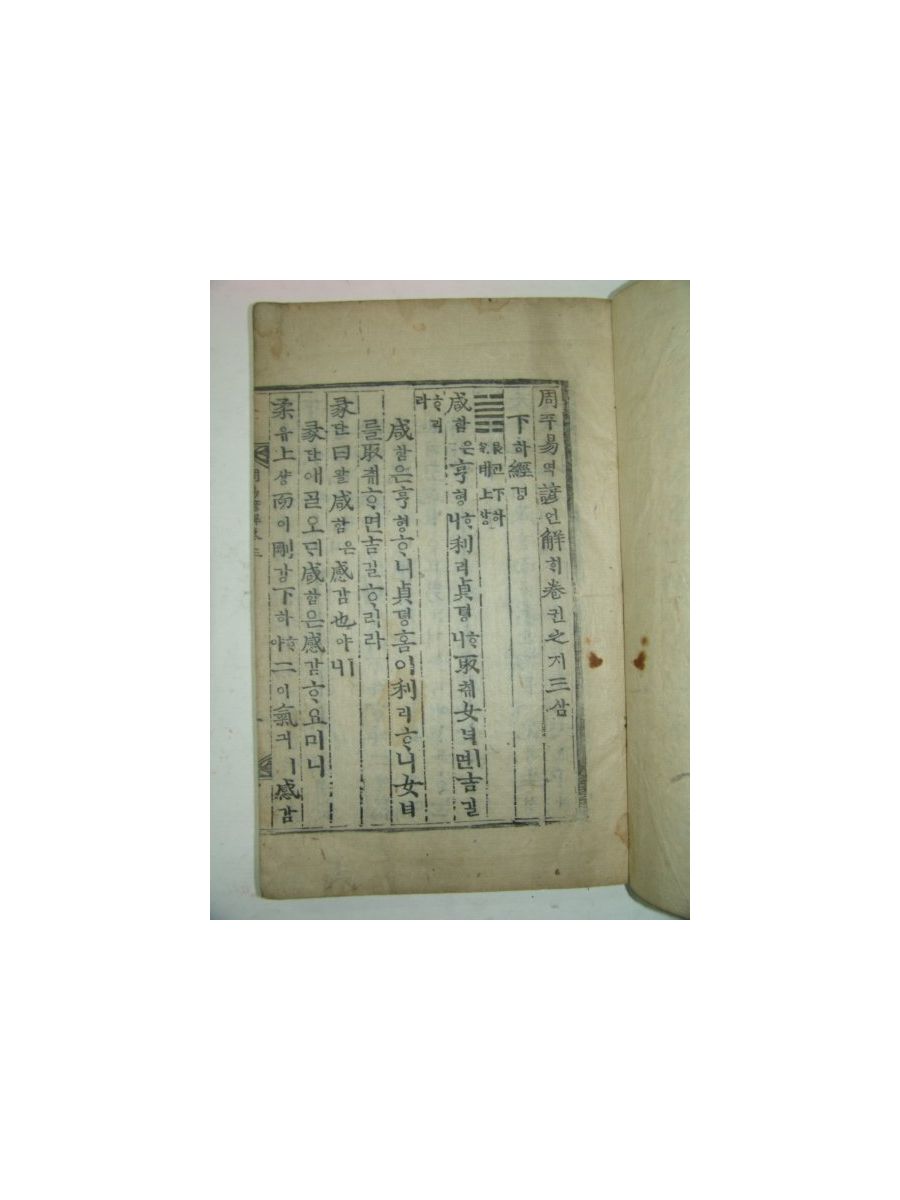 周쥬易역諺언解ᄒᆡ卷권之지三삼
下하經경
艮간下하
兌태上상
咸함은亨형ᄒᆞ니利리貞뎡ᄒᆞ니取츄女녀면吉길
ᄒᆞ리라
咸함은亨형ᄒᆞ니貞뎡홈이利리ᄒᆞ니女녀
를取츄ᄒᆞ면吉길ᄒᆞ리라
彖단曰왈咸함은感감也야ㅣ니
彖단애ᄀᆞᆯ오ᄃᆡ咸함은感감ᄒᆞ요미니
柔유上상而이剛강下하ᄒᆞ야二이氣긔ㅣ感감